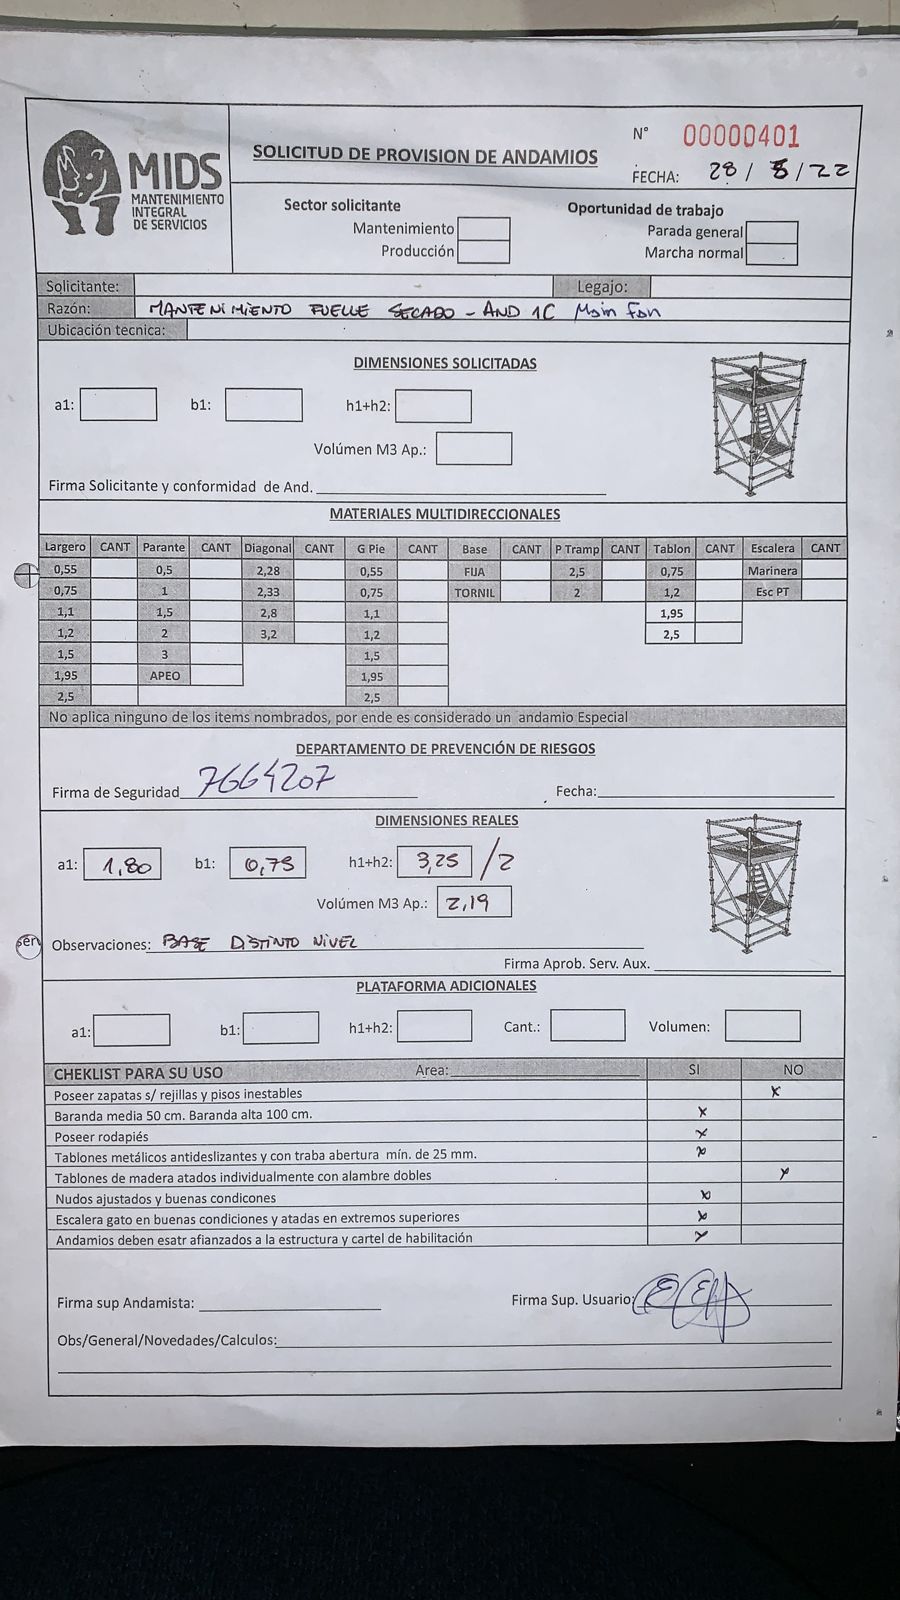 MIDS
MANTENIMIENTO
INTEGRAL
DE SERVICIOS
SOLICITUD DE PROVISION DE ANDAMIOS
N° 00000401
FECHA: 28 / 5 / 22
Sector solicitante
Mantenimiento
Producción
Oportunidad de trabajo
Parada general
Marcha normal
Solicitante: Legajo:
Razón: MANTENIMIENTO FUELLE SECADO - AND 1C Main Fan
Ubicación tecnica:
DIMENSIONES SOLICITADAS
a1: b1: h1+h2:
Volúmen M3 Ap.:
Firma Solicitante y conformidad de And.
MATERIALES MULTIDIRECCIONALES
Largero CANT Parante CANT Diagonal CANT G Pie CANT Base CANT P Tramp CANT Tablon CANT Escalera CANT
0,55 0,5 2,28 0,55 FIJA 2,5 0,75 Marinera
0,75 1 2,33 0,75 TORNIL 2 1,2 Esc PT
1,1 1,5 2,8 1,1 1,95
1,2 2 3,2 1,2 2,5
1,5 3 1,5
1,95 APEO 1,95
2,5 2,5
No aplica ninguno de los items nombrados, por ende es considerado un andamio Especial
DEPARTAMENTO DE PREVENCIÓN DE RIESGOS
Firma de Seguridad 7664207 Fecha:
DIMENSIONES REALES
a1: 1,80 b1: 0,75 h1+h2: 3,25 /2
Volúmen M3 Ap.: 2,19
ser
Observaciones: BASE DISTINTO NIVEL
Firma Aprob. Serv. Aux.
PLATAFORMA ADICIONALES
a1: b1: h1+h2: Cant.: Volumen:
CHEKLIST PARA SU USO Area: SI NO
Poseer zapatas s/ rejillas y pisos inestables x
Baranda media 50 cm. Baranda alta 100 cm. x
Poseer rodapiés x
Tablones metálicos antideslizantes y con traba abertura mín. de 25 mm. x
Tablones de madera atados individualmente con alambre dobles x
Nudos ajustados y buenas condicones x
Escalera gato en buenas condiciones y atadas en extremos superiores x
Andamios deben esatr afianzados a la estructura y cartel de habilitación x
Firma sup Andamista: Firma Sup. Usuario:
Obs/General/Novedades/Calculos: